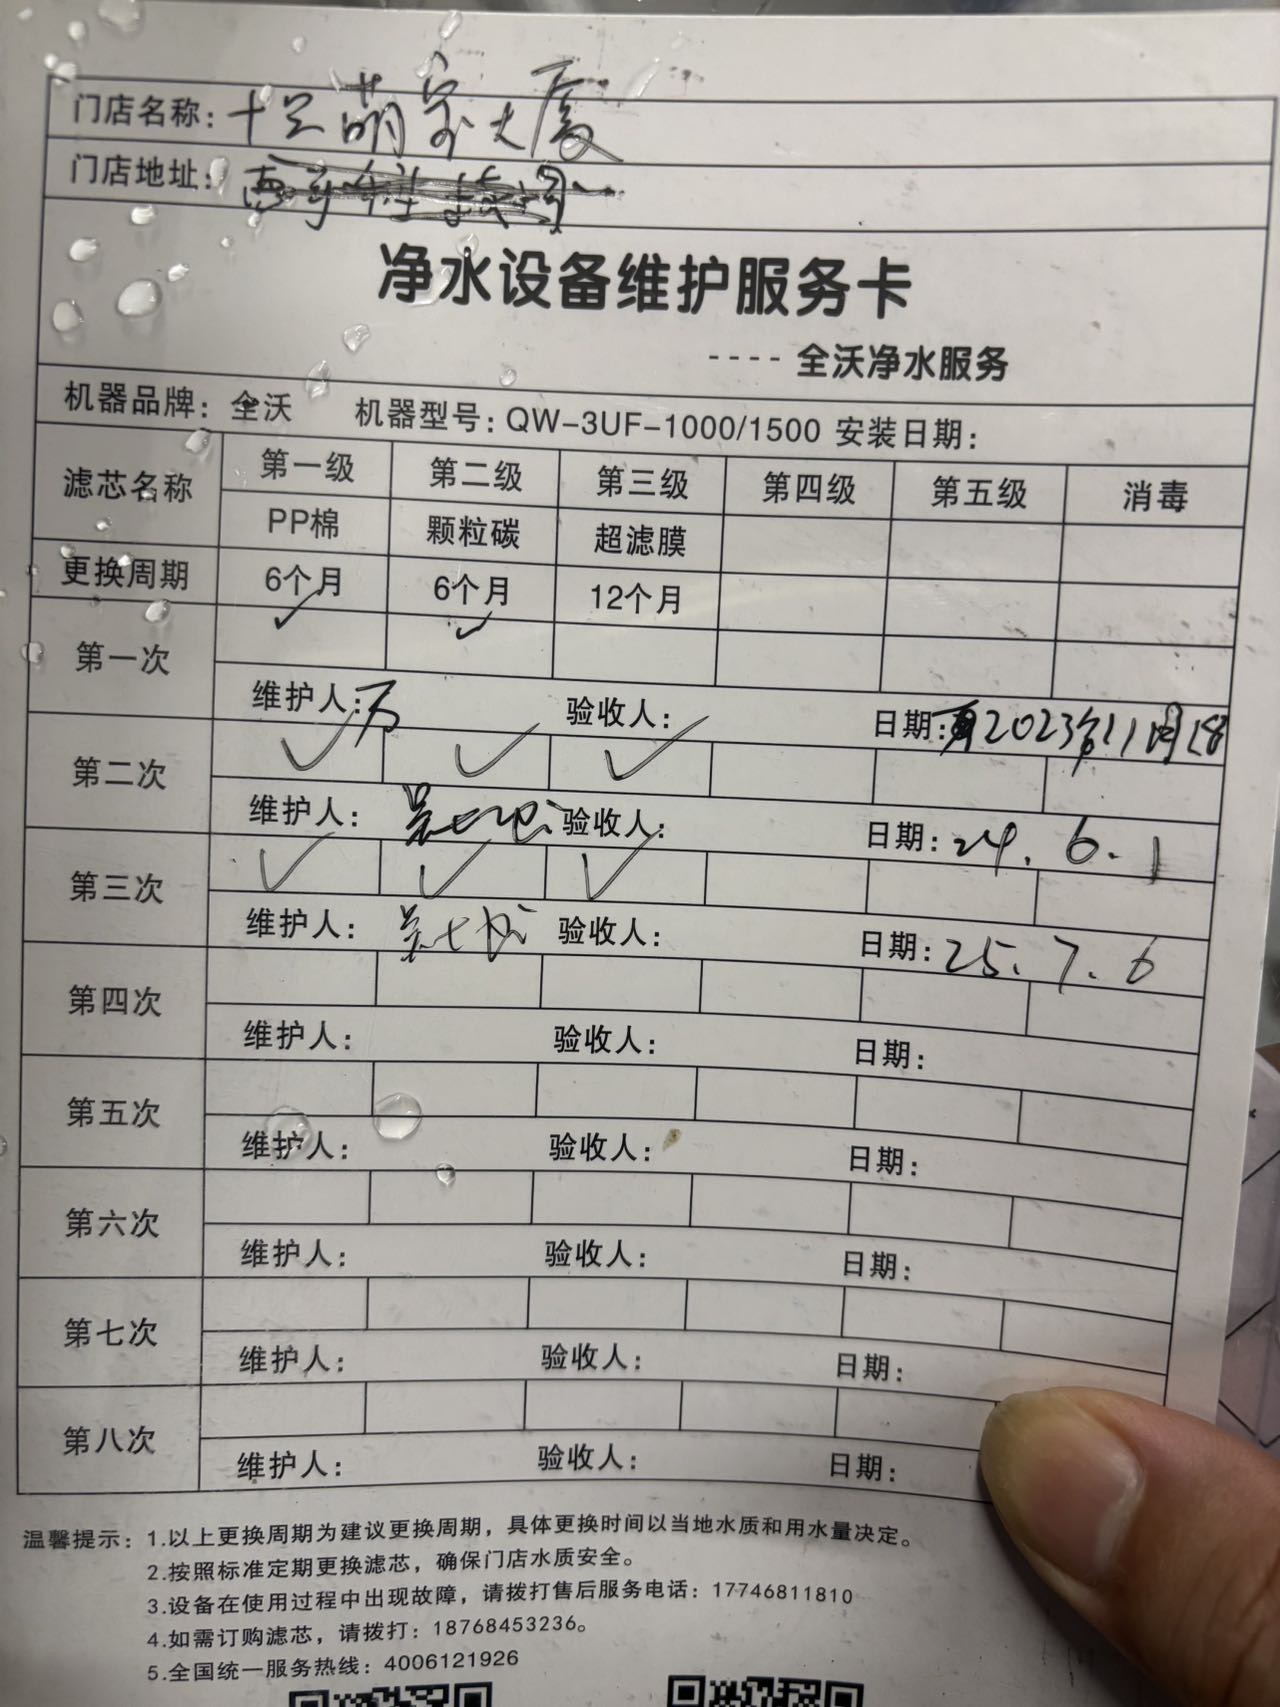 门店名称：十三萌家大厦
门店地址：
净水设备维护服务卡
---- 全沃净水服务
机器品牌：全沃 机器型号：QW-3UF-1000/1500 安装日期：
滤芯名称 第一级 第二级 第三级 第四级 第五级 消毒
PP棉 颗粒碳 超滤膜
更换周期 6个月 6个月 12个月
✓ ✓
第一次
维护人：万 验收人： 日期：2023年11月18
第二次 ✓ ✓ ✓
维护人： 验收人： 日期：24.6.1
第三次 ✓ ✓ ✓
维护人： 验收人： 日期：25.7.6
第四次
维护人： 验收人： 日期：
第五次
维护人： 验收人： 日期：
第六次
维护人： 验收人： 日期：
第七次
维护人： 验收人： 日期：
第八次
维护人： 验收人： 日期：
温馨提示：1.以上更换周期为建议更换周期，具体更换时间以当地水质和用水量决定。
2.按照标准定期更换滤芯，确保门店水质安全。
3.设备在使用过程中出现故障，请拨打售后服务电话：17746811810
4.如需订购滤芯，请拨打：18768453236。
5.全国统一服务热线：4006121926